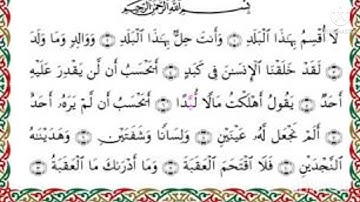 بِسْمِ اللَّهِ الرَّحْمَٰنِ الرَّحِيمِ
لَا أُقْسِمُ بِهَٰذَا الْبَلَدِ ۝ وَأَنتَ حِلٌّ بِهَٰذَا الْبَلَدِ ۝ وَوَالِدٍ وَمَا وَلَدَ
۝ لَقَدْ خَلَقْنَا الْإِنسَانَ فِي كَبَدٍ ۝ أَيَحْسَبُ أَن لَّن يَقْدِرَ عَلَيْهِ
أَحَدٌ ۝ يَقُولُ أَهْلَكْتُ مَالًا لُّبَدًا ۝ أَيَحْسَبُ أَن لَّمْ يَرَهُ أَحَدٌ
۝ أَلَمْ نَجْعَل لَّهُ عَيْنَيْنِ ۝ وَلِسَانًا وَشَفَتَيْنِ ۝ وَهَدَيْنَاهُ
النَّجْدَيْنِ ۝ فَلَا اقْتَحَمَ الْعَقَبَةَ ۝ وَمَا أَدْرَاكَ مَا الْعَقَبَةُ ۝